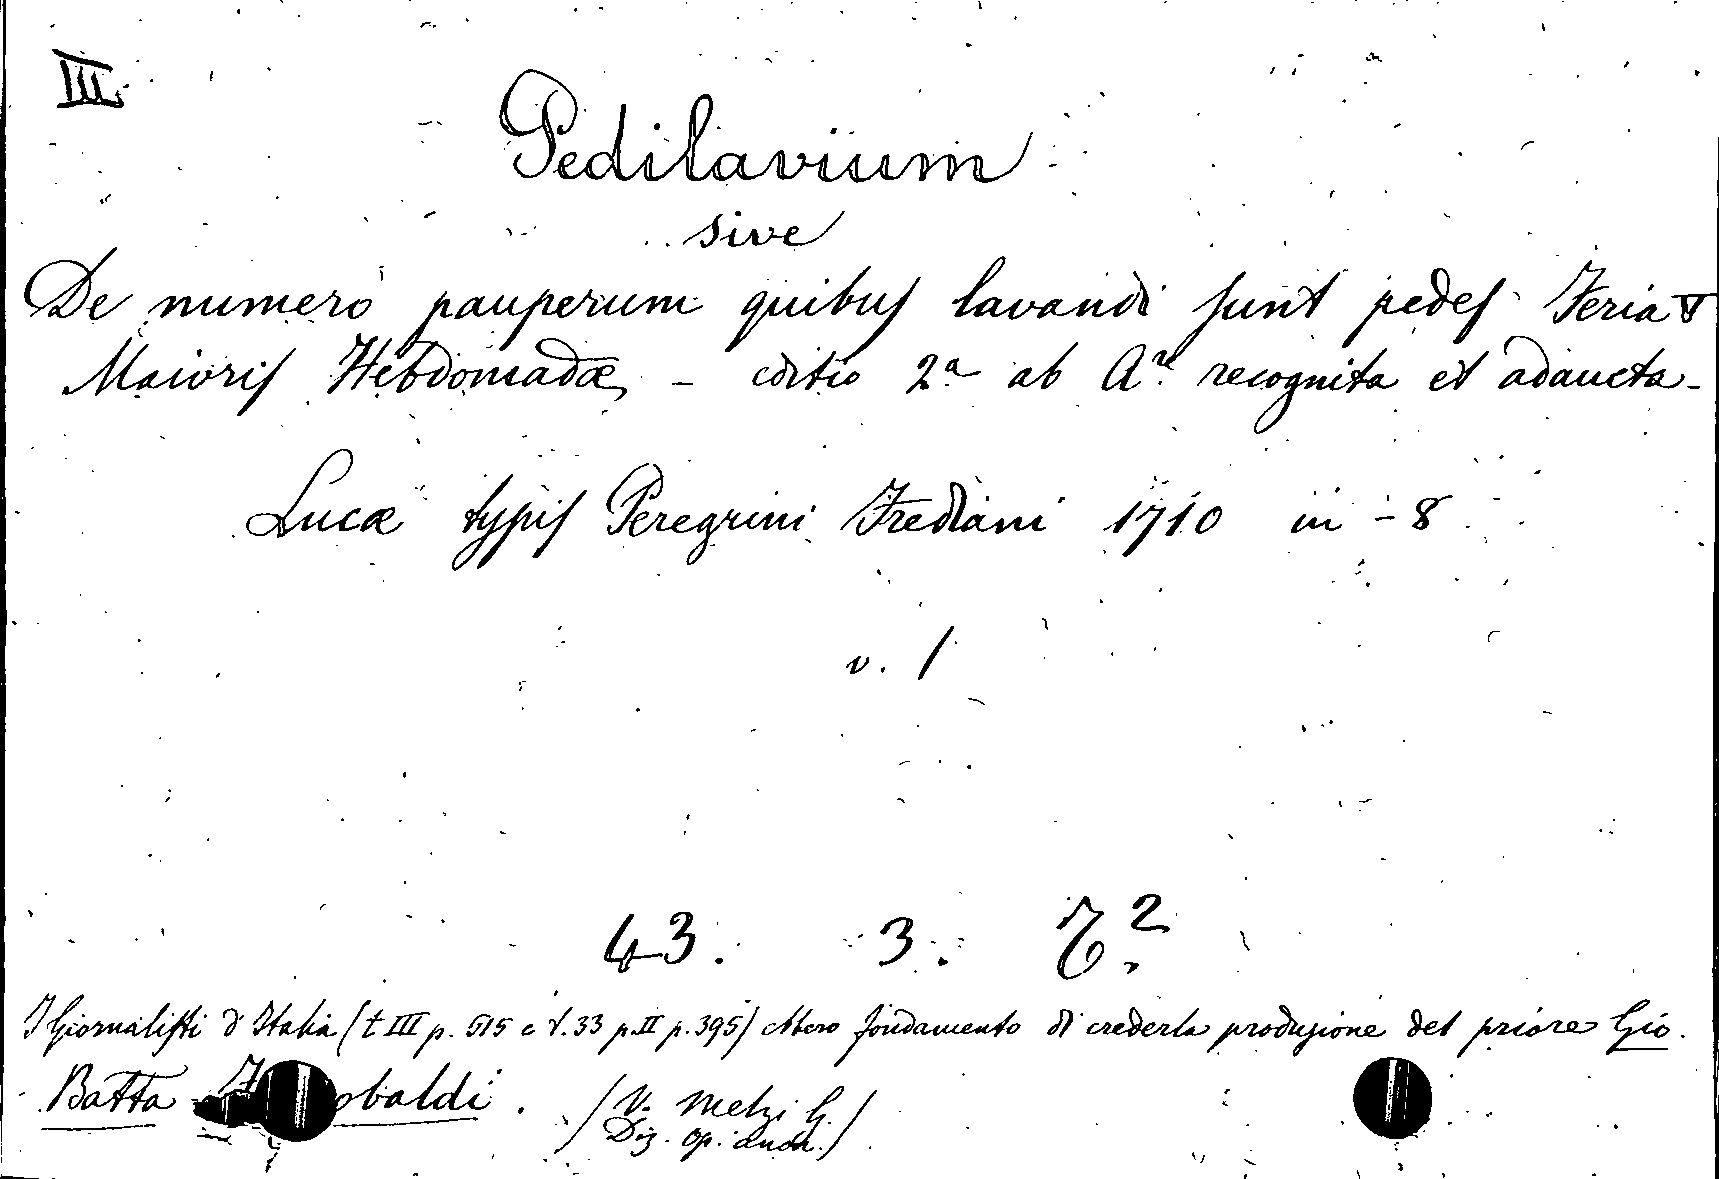 III.
Pedilavium
sive
De numero pauperum quibus lavandi sunt pedes Feria V
Maioris Hebdomadæ, - editio 2a ab Are recognita et adaucta -
Lucæ typis Peregrini Frediani 1710 in - 8
v. 1
43. 3. 2.
I Giornalisti d'Italia (t III p. 515 e t. 33 p. II p. 395) ebbero fondamento di crederla produzione del priore Gio.
Batta obaldi.
(V. Melzi G.
Diz. op. anon.)